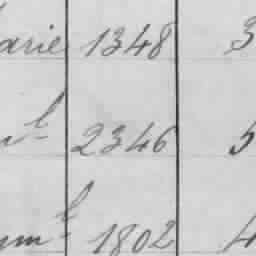 arie 1348 3
l 2346 5
ym l 1802 4